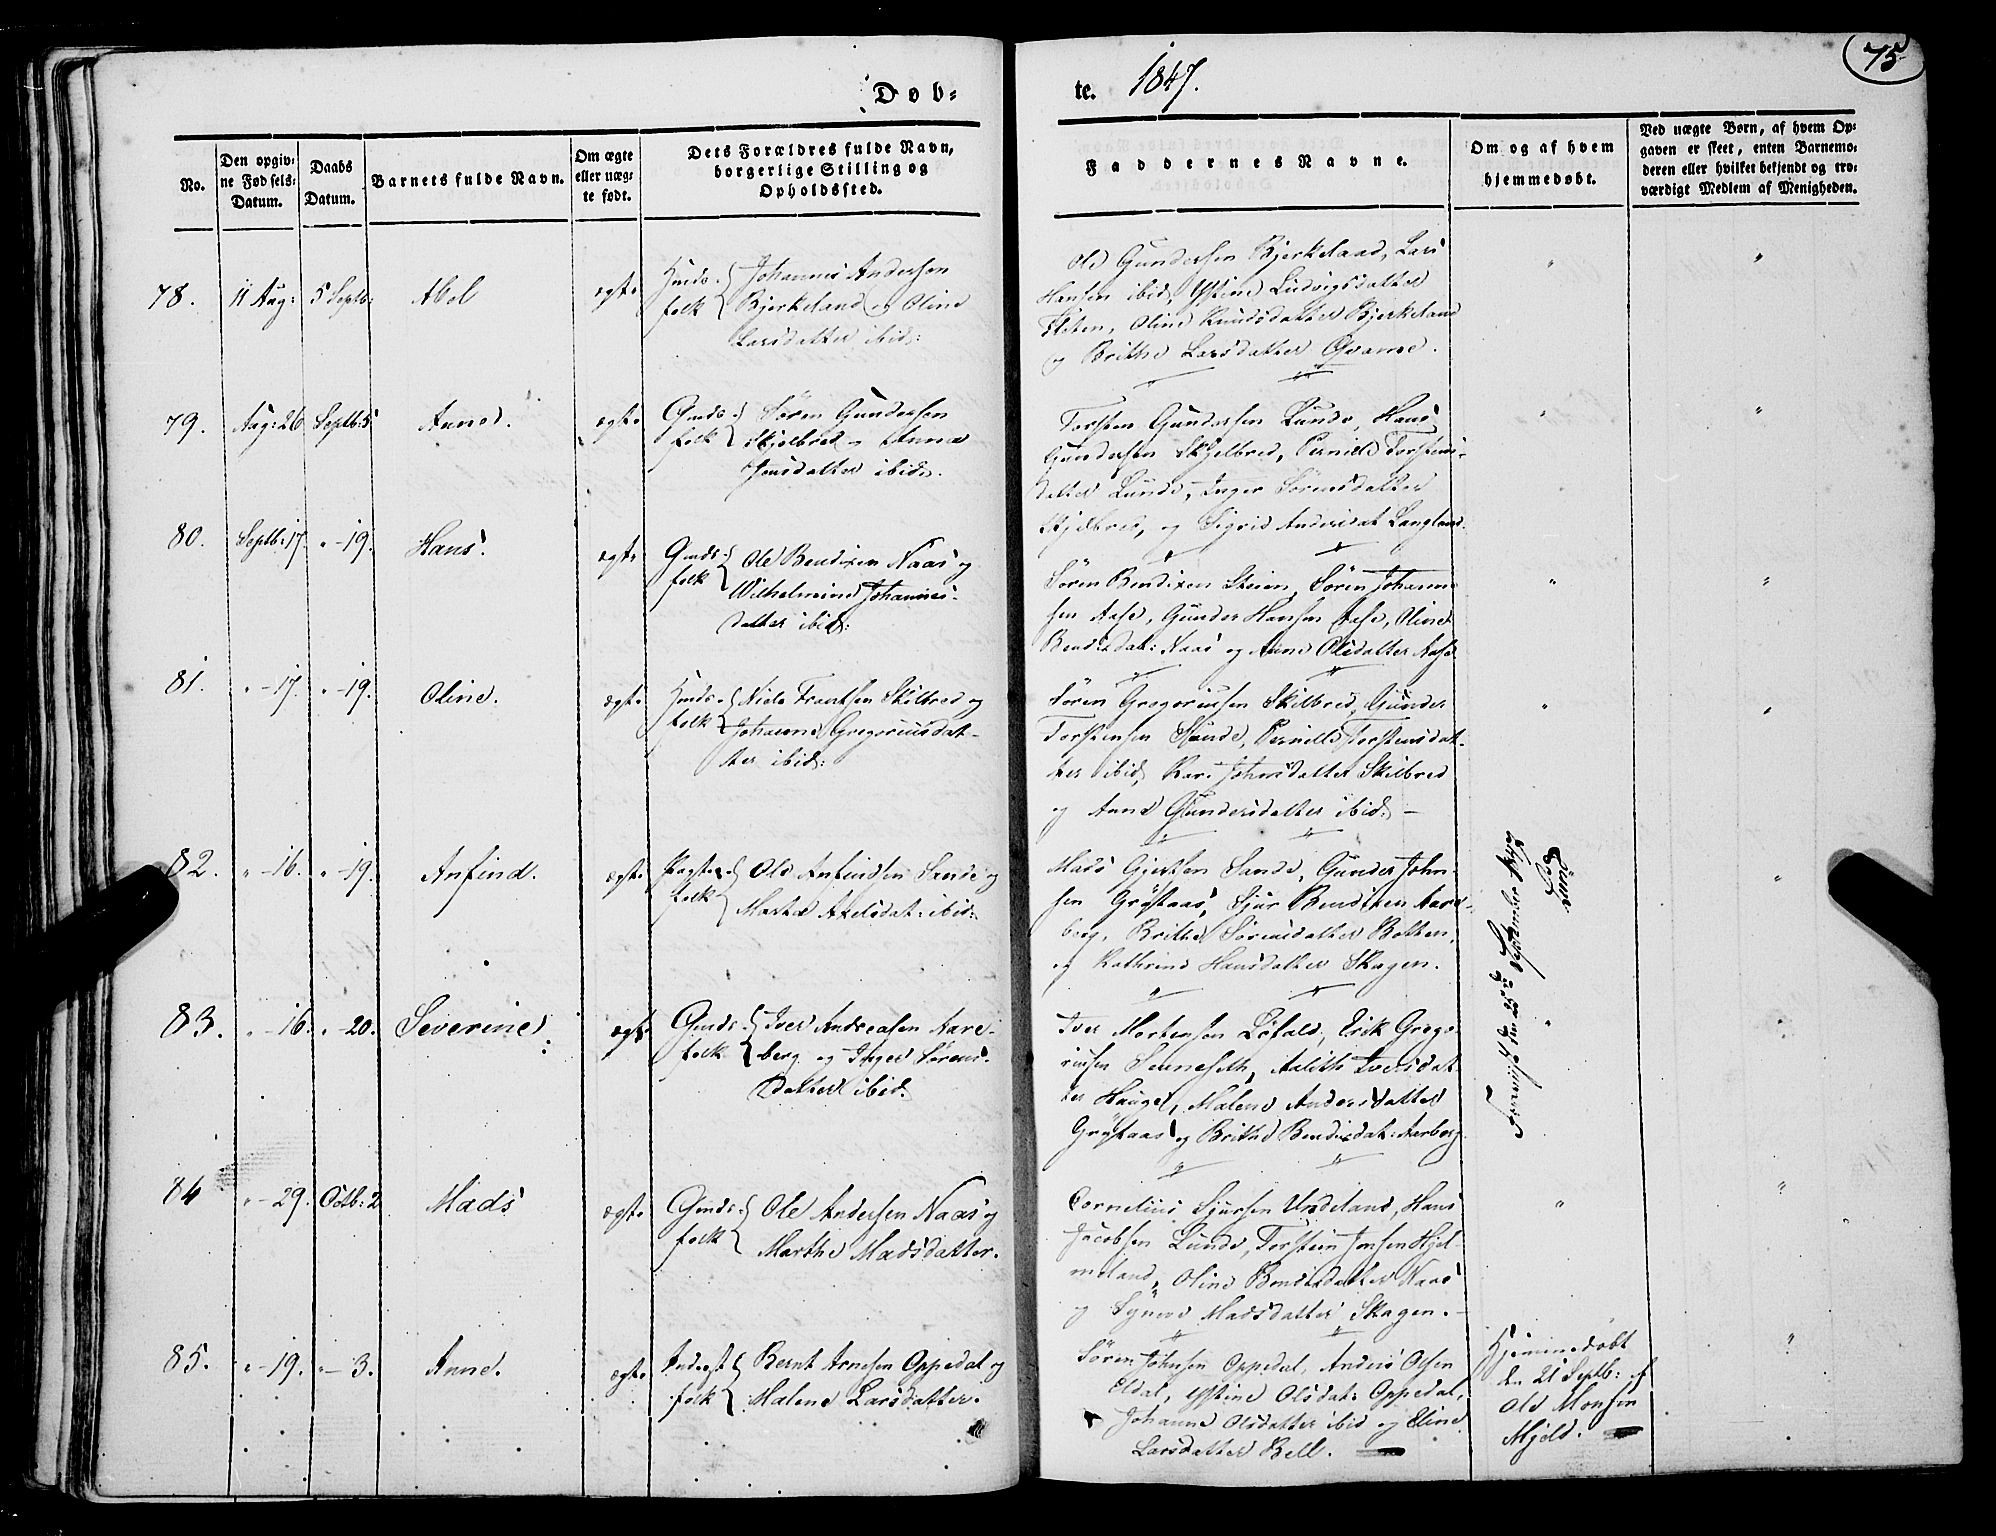 75.
Døb-
te. 1847.
No.
Den opgiv-
ne Fødsels-
Datum.
Daabs
Datum.
Barnets fulde Navn.
Om ægte
eller uæg-
te født.
Dets Forældres fulde Navn,
borgerlige Stilling og
Opholdssted.
Faddernes Navne.
Om og af hvem
hjemmedøbt.
Ved uægte Børn, af hvem Op-
gaven er skeet, enten Barnemo-
deren eller hvilket bekjendt og tro-
værdigt Medlem af Menigheden.
78. 11 Aug: 5 Septb: Abel ægte
Huusfolk Johannes Andersen
Bjerkeland og Oline
Larsdatter ibid:
Ole Gundersen Bjerkeland, Lars
Hansen ibid, Ludvigsdatter
Oline Knudsdatter Bjerkeland
og Brithe Larsdatter
79. Aug: 26 Septb: 5 Anne. ægte
Gmdsfolk Søren Gundersen
Skjelbred og Anne
Jensdatter ibid.
Torsten Gundersen Lunde, Hans
Gundersen Skjelbred, Pernille Torstens-
datter Lunde, Inger Sørensdatter
Skjelbred, og Sigrid Andersdat Langland.
80. Septb: 17. " - 19. Hans. ægte
Gmdsfolk Ole Bendixen Naas og
Wilhelmine Johannes-
datter ibid:
Søren Bendixen Steien, Søren Johanne-
sen Aase, Gunder Hansen Aase, Oline
Bendixdat: Naas og Anne Olsdatter Aase
81. " - 17. " - 19. Oline. ægte
Huusfolk Niels Frantsen Skilbred og
Johanne Gregoriusdat-
ter ibid:
Søren Gregoriusen Skilbred, Gunder
Torstensen Lunde, Pernille Torstensdat-
ter ibid, Kari Johnsdatter Skilbred
og Anne Gundersdatter ibid. -
82. " - 16. " - 19. Anfind. ægte
folk Ole Anfindsen Sande og
Marthe Axelsdat: ibid:
Mads Gjertsen Sande, Gunder John-
sen Grytaas, Sjur Bendixen Aare-
berg, Brithe Sørensdatter Botten,
og Kathrine Hansdatter Skagen.
den 25de September 1847
83. " - 16. " - 20. Severine. ægte
Gmdsfolk Iver Andreasen Aare-
berg og Inger Sørens-
datter ibid.
Iver Mortensen Løfald, Erik Grego-
riusen Senneseth, Iversdat-
ter Hauge, Malene Andersdatter
Grytaas og Brithe Bendixdat: Aarberg
84 " - 29. Octb: 2 Mads ægte
Gmdsfolk Ole Andersen Naas og
Marthe Madsdatter.
Cornelius Sjursen Undeland, Hans
Jacobsen Lunde, Torstein Jensen Hjel-
meland, Oline Bendixdatter Naas
og Synneve Madsdatter Skagen. -
85. " - 19. " - 3. Anne. ægte
folk Bernt Arnesen Oppedal og
Malene Larsdatter.
Søren Johnsen Oppedal, Anders Olsen
Eldal, Olsdat: Oppedal,
Johanne Olsdatter ibid og Eline
Larsdatter Bell.
Hjemmedøbt
den 21 Septb: af
Ole Monsen
Mjeld.